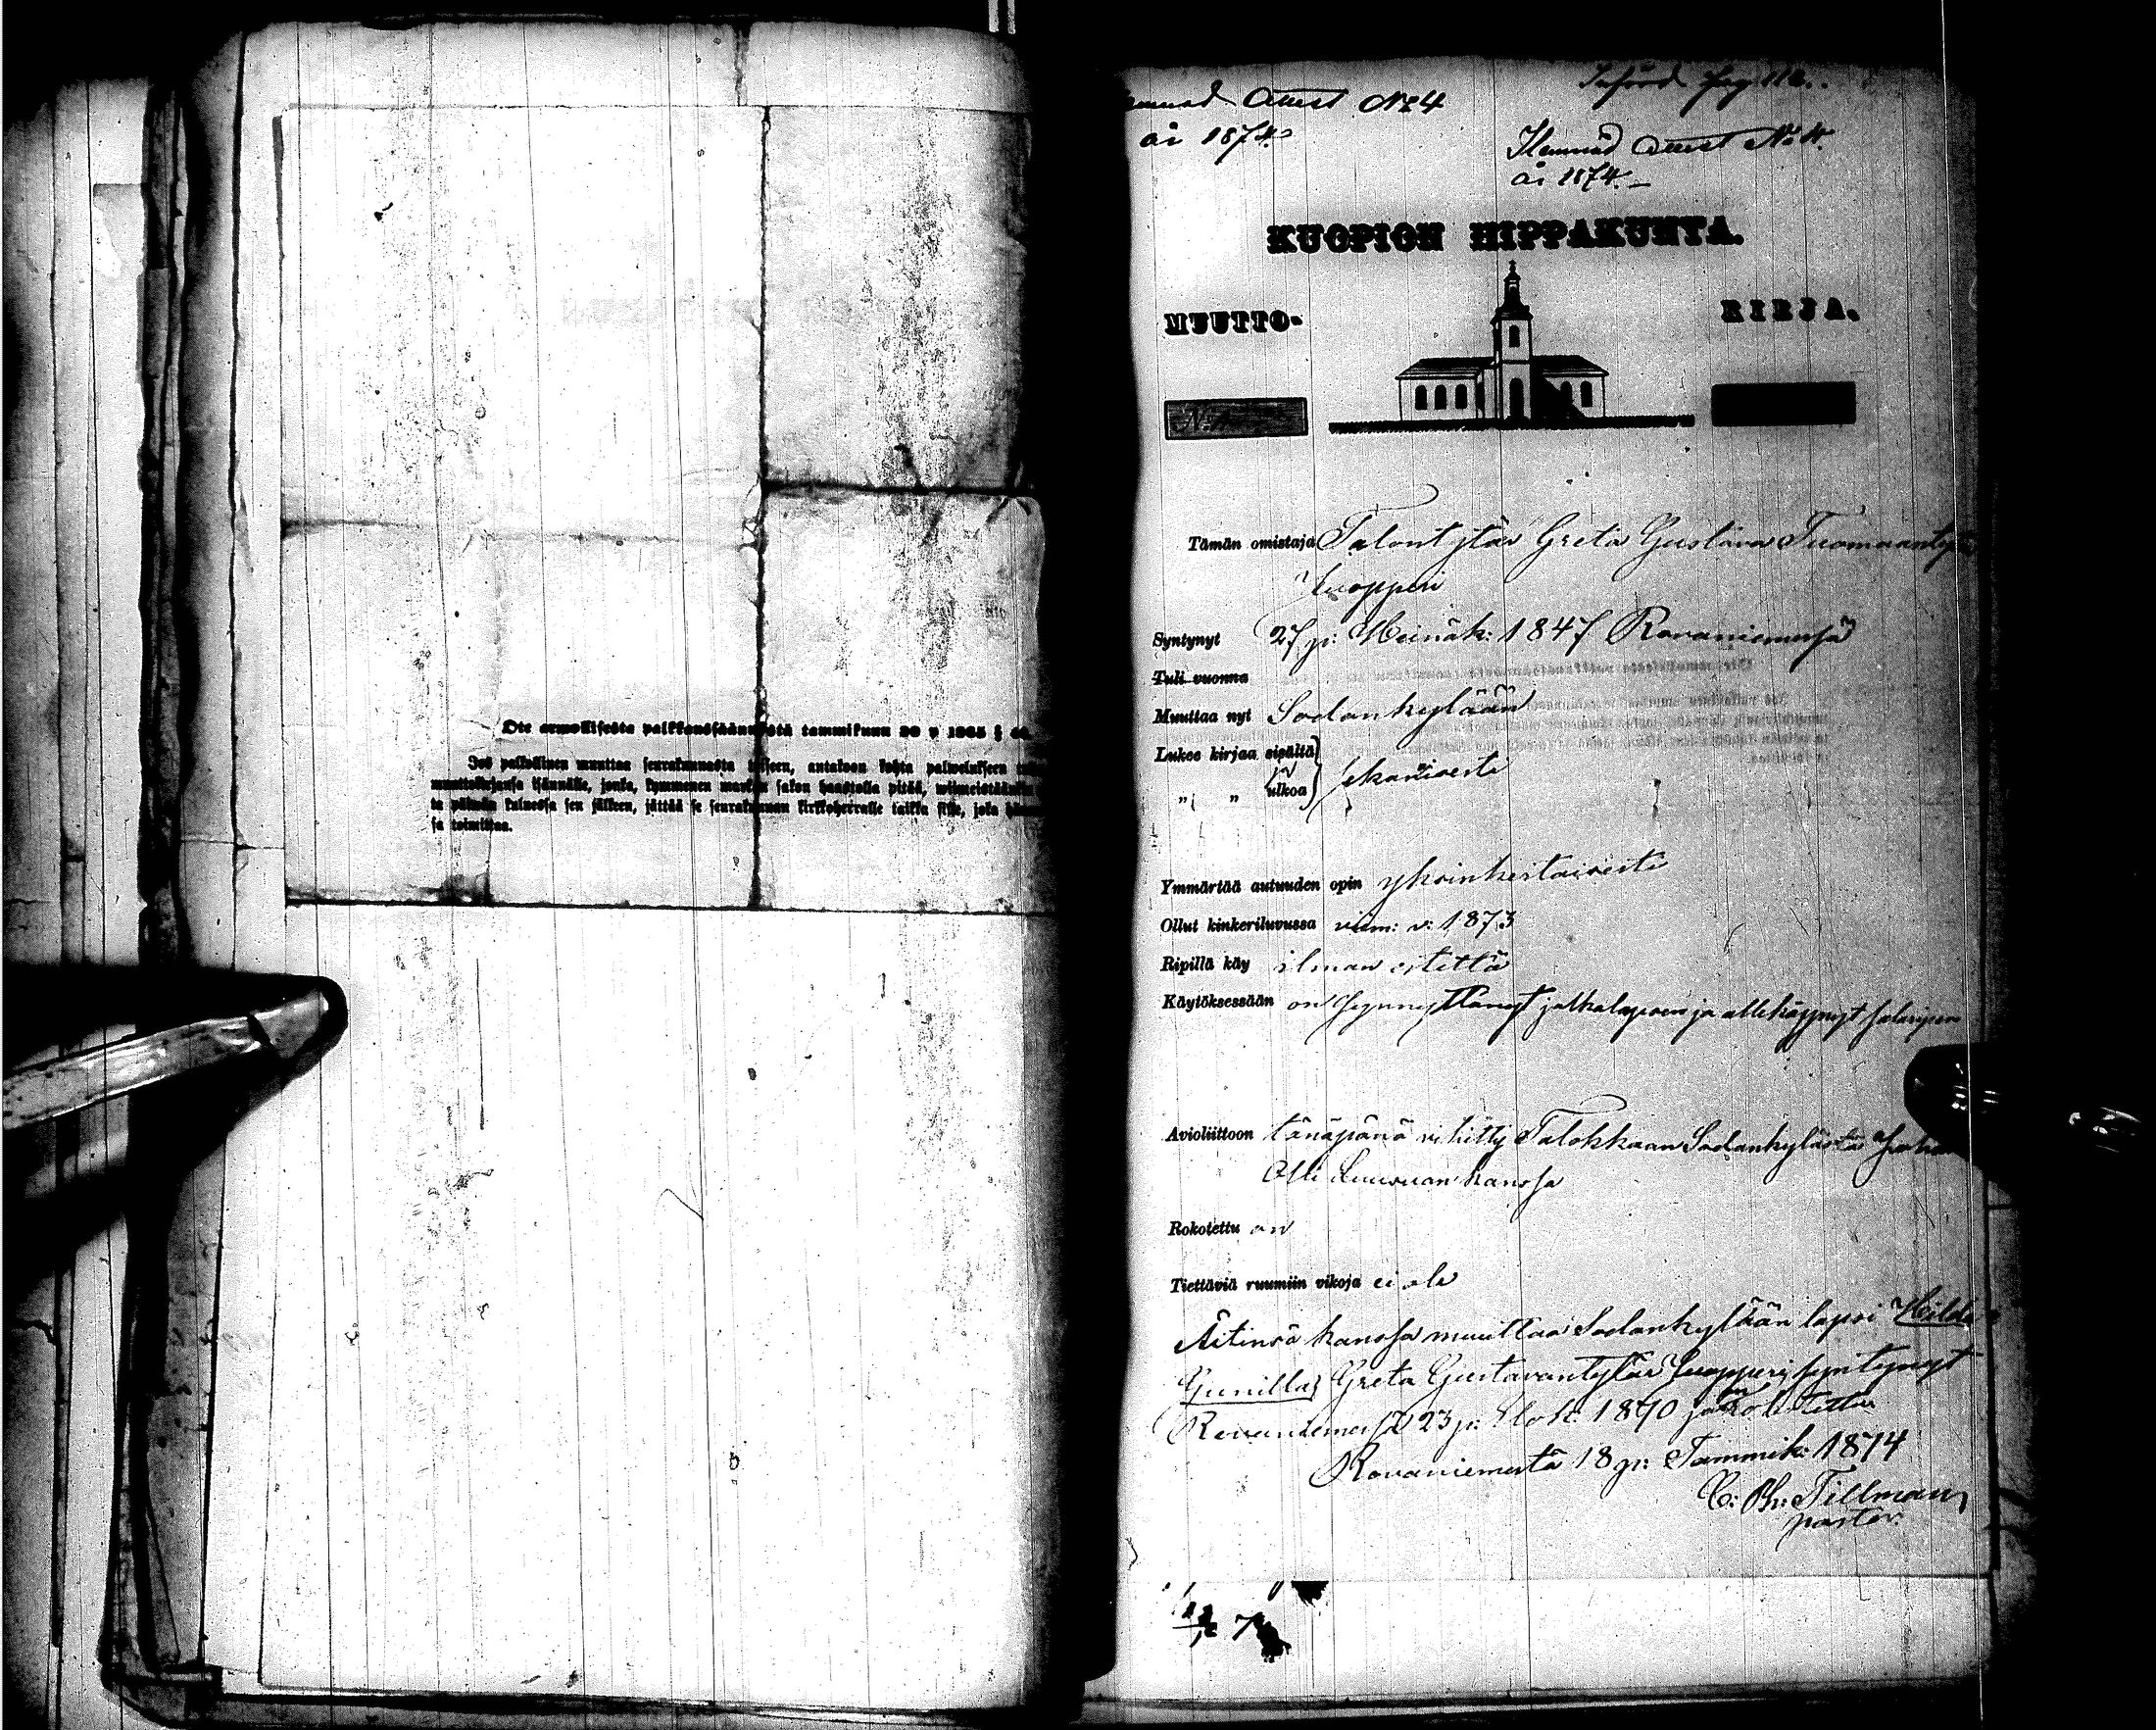 Ote armollisesta palkkaussäännöstä tammikuun 30 p 1865 §
Jos palkollinen muuttaa seurakunnasta toiseen, antakoon kohta palwelukseen
muuttokirjansa isännälle, jonka, kymmenen markan sakon haastolla pitää, wiimeistään
ta päiwän kuluessa sen jälkeen, jättää se seurakunnan kirkkoherralle taikka sille, joka
sa toimittaa.
Attest No 4
år 1874.
Införd pag 112.
Hemnad Attest No 4.
år 1874.
KUOPION HIPPAKUNTA.
MUUTTO- KIRJA.
No
Tämän omistaja Talontytär Greta Gustava Tuomaantytär
Juopperi
Syntynyt 27 p: Heinäk: 1847 Rovaniemessä
Tuli vuonna
Muuttaa nyt Sodankylään
Lukee kirjaa sisältä
" " ulkoa
Ymmärtää autuuden opin yksinkertaisesti
Ollut kinkeriluvussa viim: v: 1873
Ripillä käy ilman estettä
Käytöksessään on synnyttänyt jalkalapsen ja
Avioliittoon tänäpänä vihitty Talokkaan Sodankylästä
Olli kanssa
Rokotettu on
Tiettäviä ruumiin vikoja ei ole
Äitinsä kanssa muuttaa Sodankylään lapsi Hilda
Gunilla Greta Gustavantytär Juopperi syntynyt
Rovaniemessä 23 p: Elok: 1870 ja on rokotettu
Rovaniemestä 18 p: Tammik: 1874
C: Ph: Tillman
pastor.